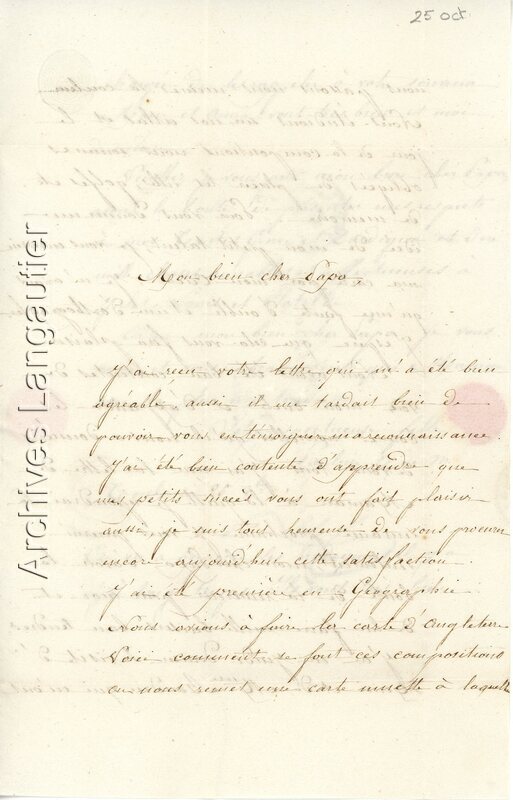 25 oct
Mon bien cher Papa,
J'ai reçu votre lettre qui m'a été bien
agreable, aussi il me tardait bien de
pouvoir vous en temoigner ma reconnaissance.
J'ai été bien contente d'apprendre que
mes petits succès vous ont fait plaisir
aussi, je suis tout heureuse de vous procurer
encore aujourd'hui cette satisfaction.
J'ai été première en Geographie.
Nous avions à faire la carte d'Angleterre
Voici comment se font ces compositions
on nous remet une carte muette à laquelle
Archives Langautier